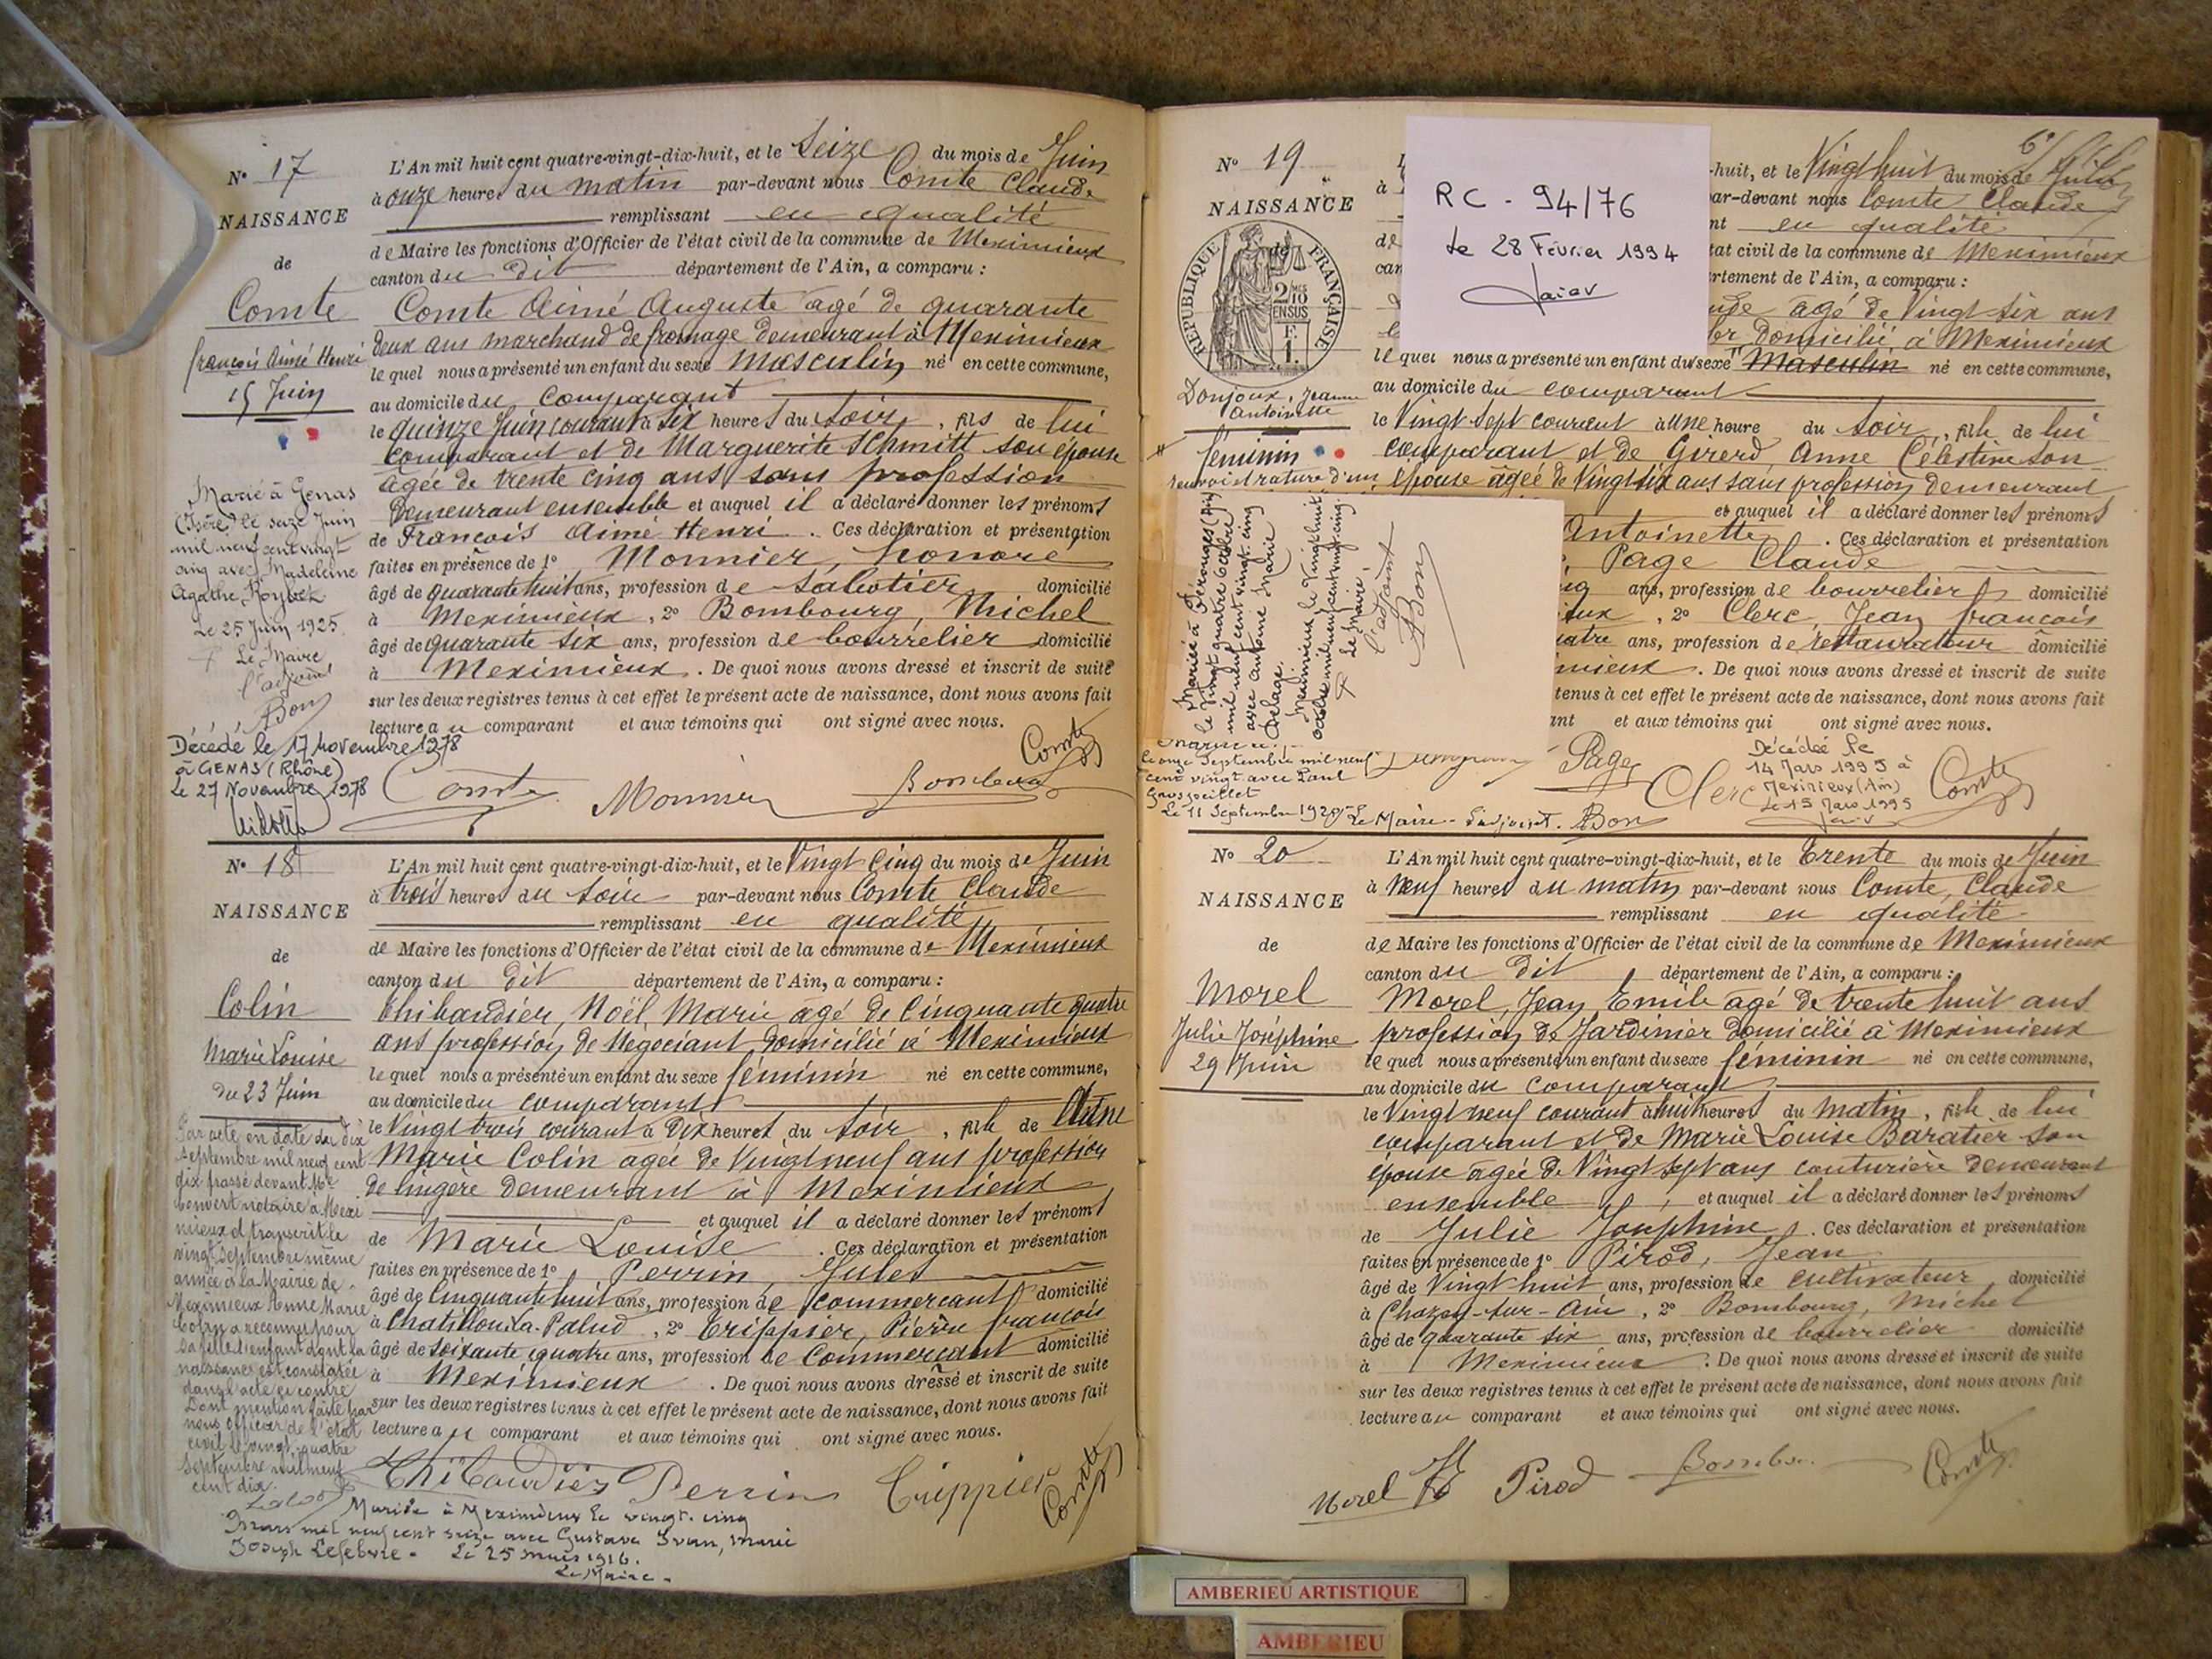 N° 17
NAISSANCE
de
Comte
François Aimé Henri
15 Juin
L'An mil huit cent quatre-vingt-dix-huit, et le Seize du mois de Juin
à onze heures du matin par-devant nous Comte Claude
remplissant en qualité
de Maire les fonctions d'Officier de l'état civil de la commune de Meximieux
canton du dit département de l'Ain, a comparu :
Comte Aimé Auguste agé de quarante
deux ans marchand de fromage demeurant à Meximieux
lequel nous a présenté un enfant du sexe masculin né en cette commune,
au domicile du comparant
le quinze Juin courant à six heures du soir, fils de lui
comparant et de Marguerite Schmitt son épouse
agée de trente cinq ans sans profession
demeurant ensemble et auquel il a déclaré donner les prénoms
de François Aimé Henri. Ces déclaration et présentation
faites en présence de 1° Monnier, honoré
âgé de quarante huit ans, profession de sabotier domicilié
à Meximieux, 2° Bombourg, Michel
âgé de quarante six ans, profession de bourrelier domicilié
à Meximieux. De quoi nous avons dressé et inscrit de suite
sur les deux registres tenus à cet effet le présent acte de naissance, dont nous avons fait
lecture au comparant et aux témoins qui ont signé avec nous.
Marié à Genas
(Isère) le seize Juin
mil neuf cent vingt
cinq avec Madeleine
Agathe
Le 25 Juin 1925
Le Maire
l'adjoint
Bon
Décédé le 17 Novembre 1978
à GENAS (Rhône)
Le 27 Novembre 1978
Comte
Monnier
Bombourg
Comte
N° 18
NAISSANCE
de
Colin
Marie Louise
du 23 Juin
L'An mil huit cent quatre-vingt-dix-huit, et le Vingt Cinq du mois de Juin
à trois heures du soir par-devant nous Comte Claude
remplissant en qualité
de Maire les fonctions d'Officier de l'état civil de la commune de Meximieux
canton du dit département de l'Ain, a comparu :
Thibaudier, Noël, Marie agé de Cinquante quatre
ans profession de Negociant domicilié à Meximieux
lequel nous a présenté un enfant du sexe féminin né en cette commune,
au domicile du comparant
le Vingt trois courant à Dix heures du soir, fille de Anne
Marie Colin agée de Vingt neuf ans profession
de lingère demeurant à Meximieux
et auquel il a déclaré donner les prénoms
de Marie Louise. Ces déclaration et présentation
faites en présence de 1° Perrin, Jules
âgé de Cinquante huit ans, profession de commerçant domicilié
à Chatillon-la-Palud, 2° Trippier, Pierre françois
âgé de soixante quatre ans, profession de Commerçant domicilié
à Meximieux. De quoi nous avons dressé et inscrit de suite
sur les deux registres tenus à cet effet le présent acte de naissance, dont nous avons fait
lecture au comparant et aux témoins qui ont signé avec nous.
Par acte en date du dix
septembre mil neuf cent
dix passé devant Me
Convert notaire à Mexi
mieux et transcrit le
vingt septembre même
année à la Mairie de
Meximieux Anne Marie
Colin a reconnu pour
sa fille l'enfant dont la
naissance est constatée
dans l'acte ci contre
Dont mention faite par
nous officier de l'état
civil le vingt quatre
Septembre mil neuf
cent dix.
Thibaudier
Perrin
Trippier
Comte
Mariée à Meximieux le vingt-cinq
mars mil neuf cent seize avec Gustave Ivan, Marie
Joseph Lefebvre. Le 25 mars 1916.
Le Maire
N° 19
NAISSANCE
de
RÉPUBLIQUE FRANÇAISE
2/10 MES
EN SUS
F.
1.
Donjoux, Jeanne
Antoinette
féminin
RC - 94/76
Le 28 Février 1994
-huit, et le Vingt huit du mois de Juin
par-devant nous Comte Claude
en qualité
état civil de la commune de Meximieux
rtement de l'Ain, a comparu :
agé de Vingt six ans
domicilié à Meximieux
lequel nous a présenté un enfant du sexe Masculin né en cette commune,
au domicile du comparant
le Vingt Sept courant à Une heure du soir, fille de lui
comparant et de Girerd Anne Célestine son
épouse agée de Vingt six ans sans profession demeurant
et auquel il a déclaré donner les prénoms
Antoinette. Ces déclaration et présentation
Page Claude
ans, profession de bourrelier domicilié
ieux, 2° Clerc, Jean françois
uatre ans, profession de restaurateur domicilié
mieux. De quoi nous avons dressé et inscrit de suite
tenus à cet effet le présent acte de naissance, dont nous avons fait
ant et aux témoins qui ont signé avec nous.
Mariée à Pérouges (Ain)
le vingt quatre octobre
mil neuf cent vingt cinq
avec Antoine Marie
Delage.
Meximieux le vingt huit
octobre mil neuf cent vingt cinq.
Le Maire,
l'adjoint
Bon
le onze Septembre mil neuf
cent vingt avec Paul
Le 11 Septembre 1920
Le Maire
l'adjoint.
Bon
Page
Clerc
Décédée le
14 Mars 1995 à
Meximieux (Ain)
Le 15 Mars 1995
Comte
N° 20
NAISSANCE
de
Morel
Julie Joséphine
29 Juin
L'An mil huit cent quatre-vingt-dix-huit, et le Trente du mois de Juin
à Neuf heures du matin par-devant nous Comte, Claude
remplissant en qualité
de Maire les fonctions d'Officier de l'état civil de la commune de Meximieux
canton du dit département de l'Ain, a comparu :
Morel, Jean Emile agé de trente huit ans
profession de Jardinier domicilié à Meximieux
lequel nous a présenté un enfant du sexe féminin né en cette commune,
au domicile du comparant
le Vingt neuf courant à huit heures du matin, fille de lui
comparant et de Marie Louise Baratier son
épouse agée de Vingt sept ans couturière demeurant
ensemble et auquel il a déclaré donner les prénoms
de Julie Joséphine. Ces déclaration et présentation
faites en présence de 1° Pirod, Jean
âgé de Vingt huit ans, profession de cultivateur domicilié
à Chazey-sur-Ain, 2° Bombourg, Michel
âgé de quarante six ans, profession de bourrelier domicilié
à Meximieux. De quoi nous avons dressé et inscrit de suite
sur les deux registres tenus à cet effet le présent acte de naissance, dont nous avons fait
lecture au comparant et aux témoins qui ont signé avec nous.
Morel
Pirod
Bombourg
Comte
AMBERIEU ARTISTIQUE
AMBERIEU